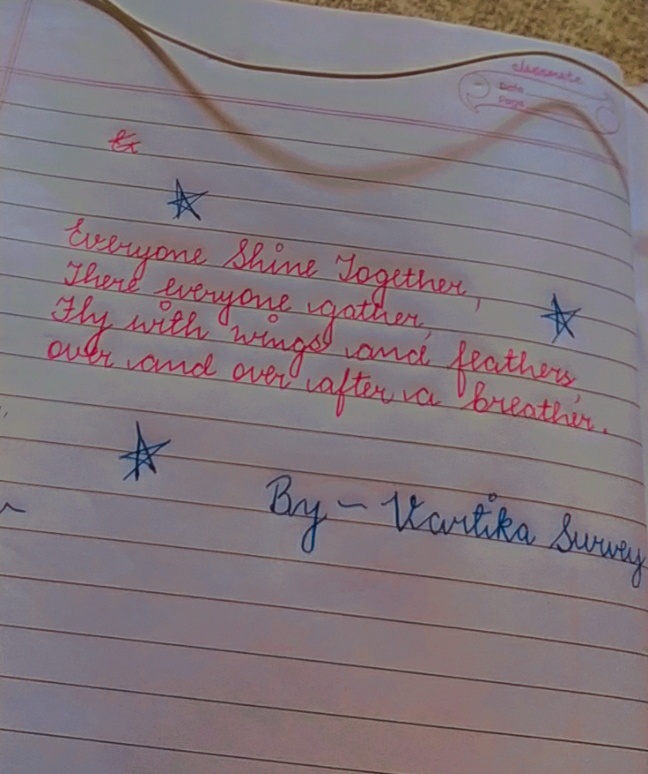 classmate
Date
Page
Everyone Shine Together,
There everyone gather,
Fly with wings and feathers,
over and over after a breather.
By - Vartika Survey